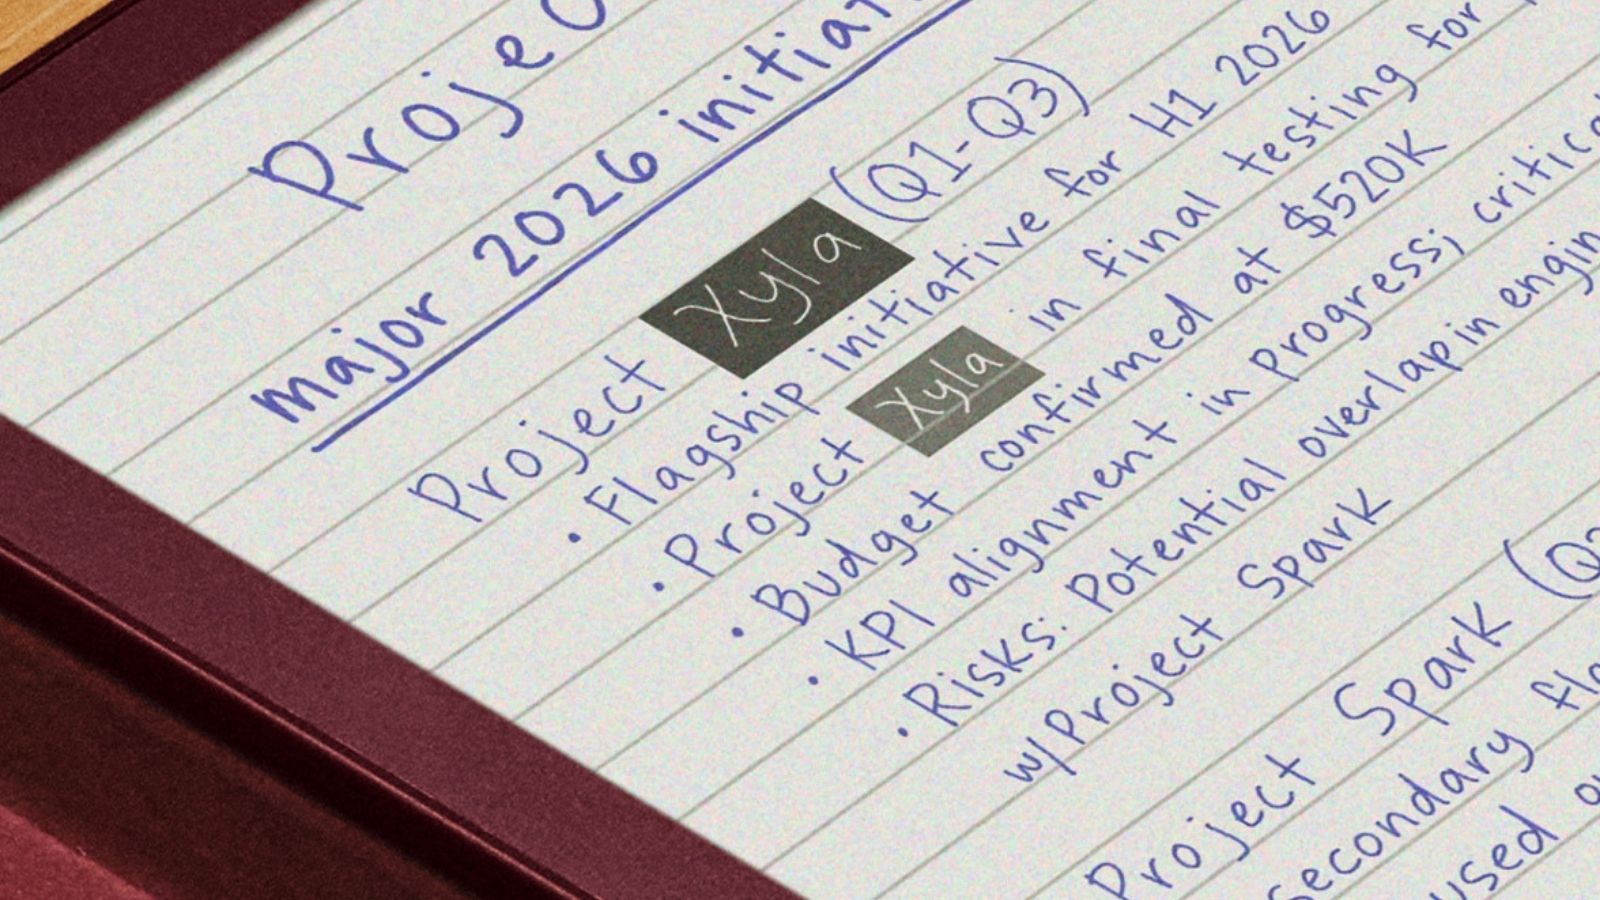 Projec
major 2026 initiat
Project Xyla (Q1-Q3)
• Flagship initiative for H1 2026
• Project Xyla in final testing for
• Budget confirmed at $520K
• KPI alignment in Progress; critica
• Risks: Potential overlap in engin
w/Project Spark
Project Spark (Q2
Secondary fla
used